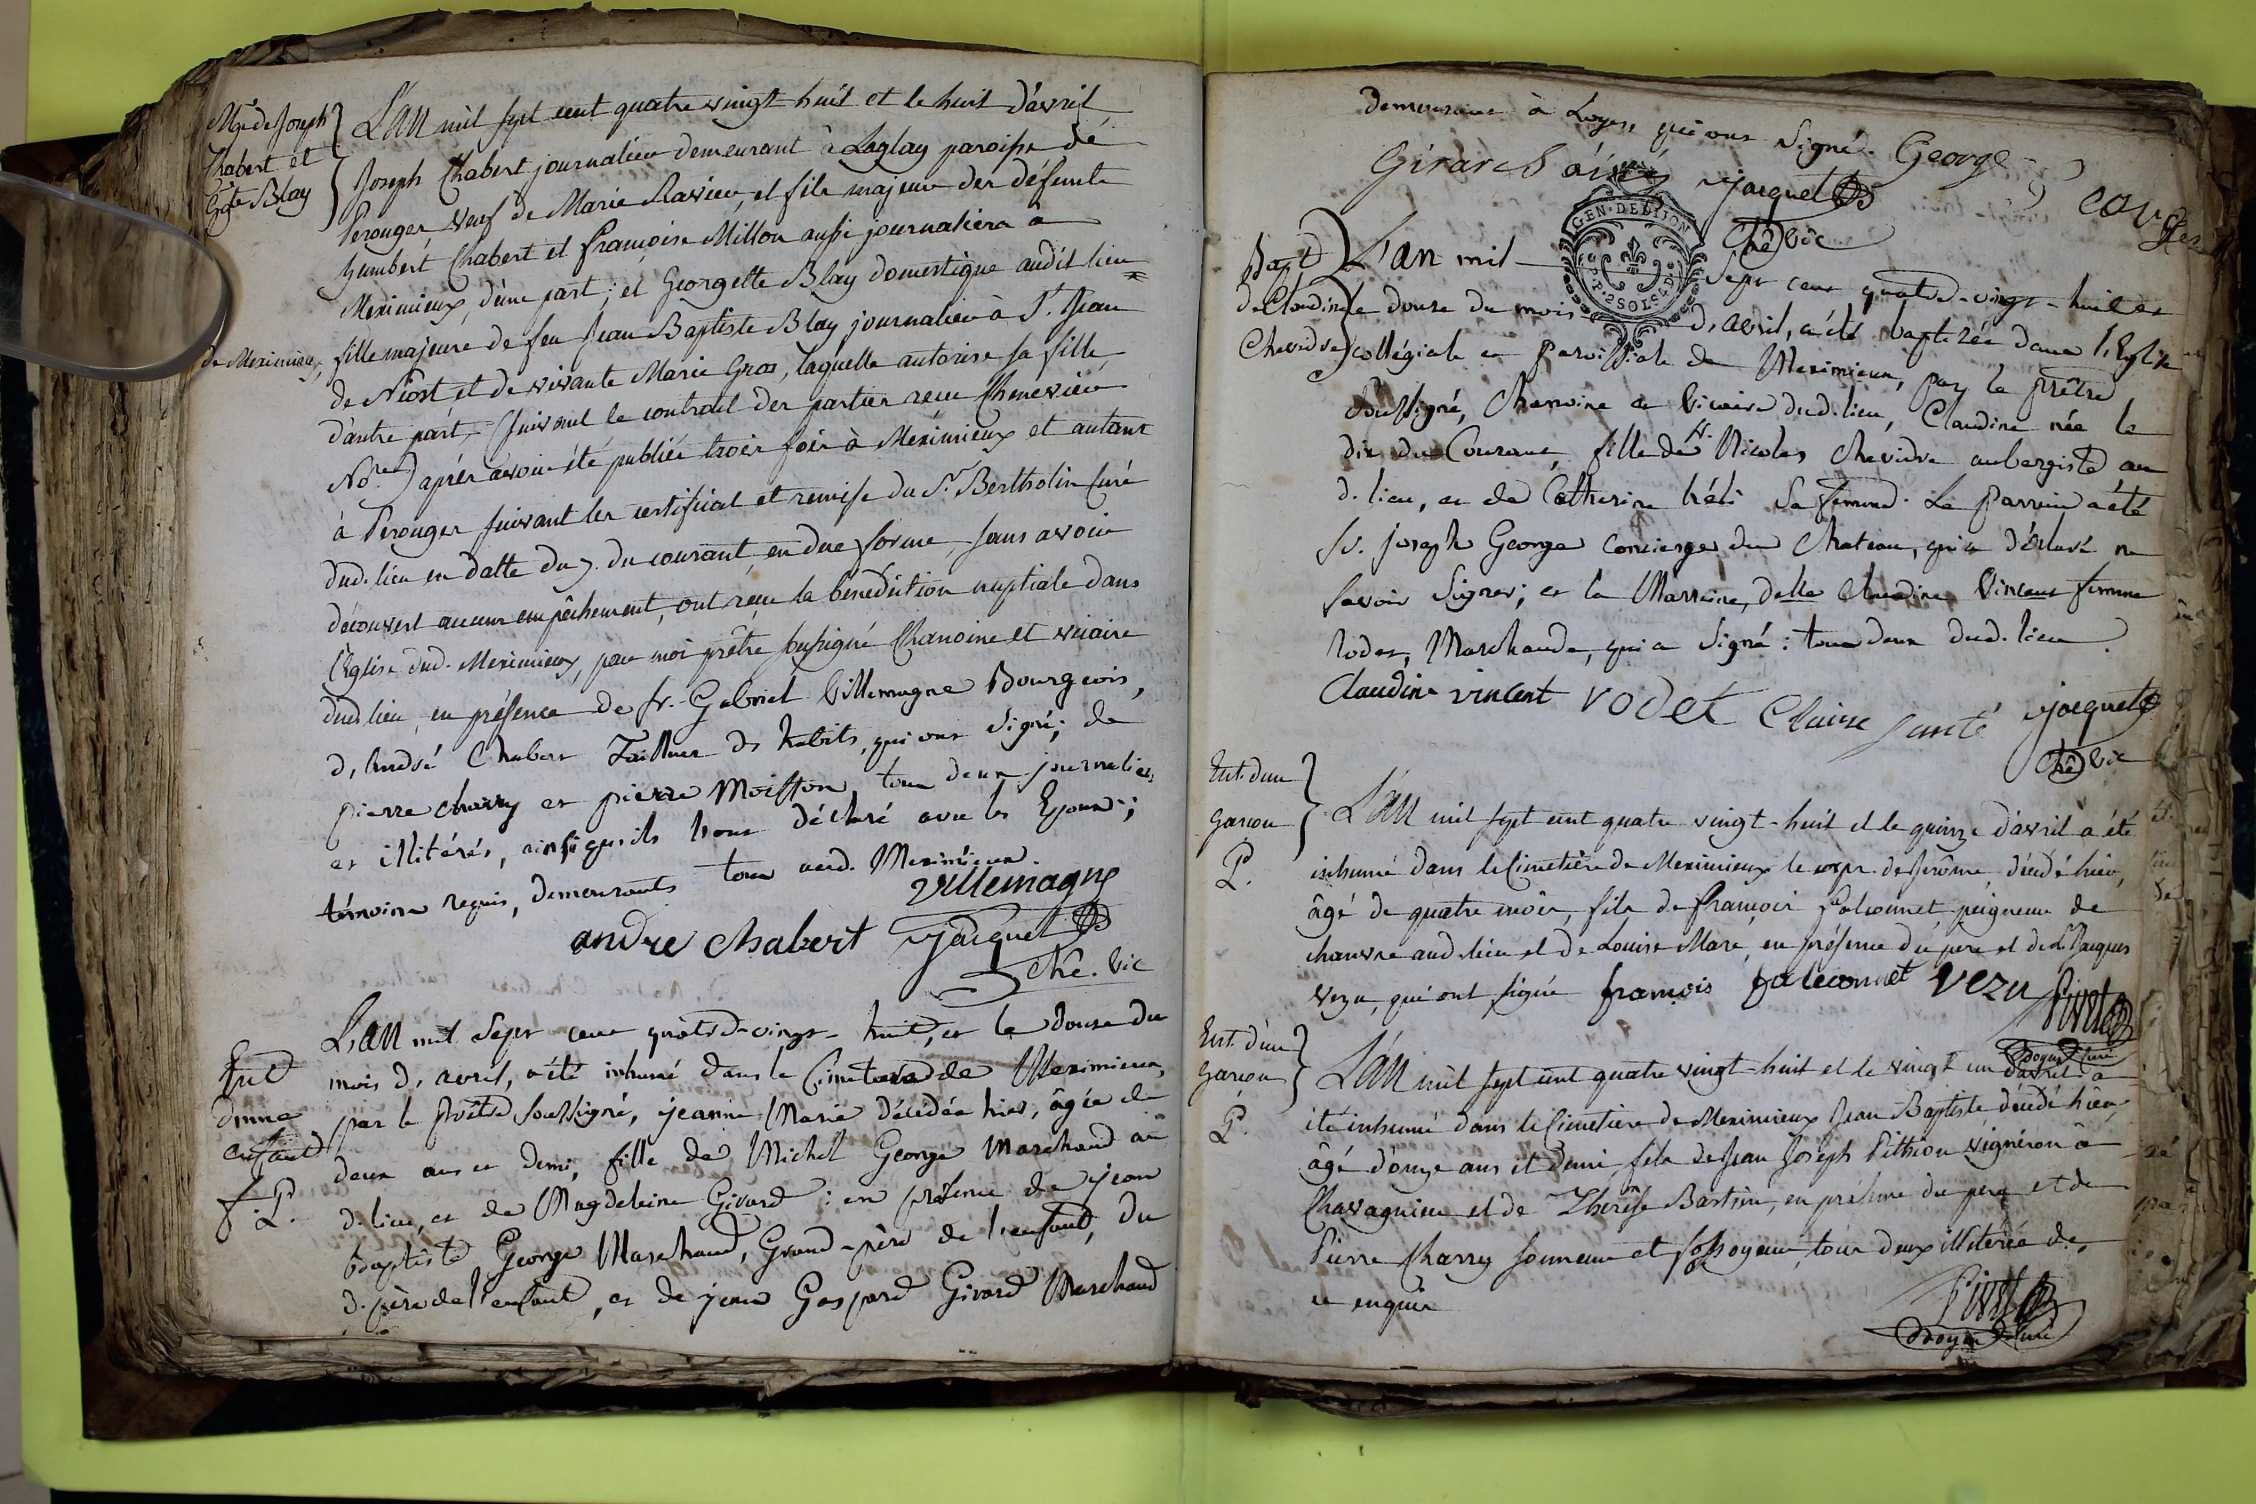 Mge de Joseph
Chabert et
Gte Blay
L'an mil sept cent quatre vingt huit et le huit d'avril
Joseph Chabert journalier demeurant à Laglay paroisse de
Perouger veuf de Marie Ravier, et fils majeur des défunts
humbert Chabert et françoise Millon aussi journaliers à
Meximieux, d'une part; et Georgette Blay domestique audit lieu
de Meximieux, fille majeure de feu Jean Baptiste Blay journalier à St. Jean
de Niost et de vivante Marie Gros, laquelle autorise sa fille
d'autre part, suivant le contrat des parties reçu Chenevier
No.re) après avoir été publiés trois fois à Meximieux et autant
à Perouger suivant les certificat et remise du Sr. Bertholin Curé
dud. lieu en datte du 7. du courant, en due forme, sans avoir
découvert aucun empêchement, ont reçu la bénédiction nuptiale dans
l'Eglise dud. Meximieux, par moi prêtre soussigné Chanoine et vicaire
dud. lieu, en présence de sr. Gabriel Villemagne Bourgeois,
d'André Chabert Tailleur de habits, qui ont signé; de
pierre charry et pierre Moisson tous deux journaliers
et illitérés, ainsi qu'ils l'ont déclaré avec les Epoux;
témoins requis, demeurants tous aud. Meximieux.
villemagne
andre chabert Jacquet
Che. Vic
Ent.
d'une
enfant
f. P.
L'an mil sept cent quatre-vingt-huit, et le douze du
mois d'avril, a été inhumé dans le Cimetiere de Meximieux,
par le prêtre soussigné, jeanne Marie décédée hier, âgée de
deux ans et demi, fille de Michel George Marchand au
d. lieu, et de Magdeleine Girard: en présence de jean
baptiste George Marchand, Grand-père de l'enfant, du
d. père de l'enfant, et de jean Gaspard Girard Marchand
demeurant à Loyes, qui ont signé. George
Girard ainé Jacquet
Che Vic
GEN. DE DIJON
P. 2 SOLS 4 D.
Bapt
de Claudine
Chevidre
L'an mil sept cent quatre-vingt-huit et
le douze du mois d'avril, a été baptizée dans l'Eglise
collégiale et paroissiale de Meximieux, par le prêtre
soussigné, Chanoine et Vicaire dud. lieu, Claudine née le
dix du Courant, fille de sr. Nicolas Chevidre aubergiste au
d. lieu, et de Catherine sa femme. Le parrein a été
sr. joseph George Concierge du Chateau, qui a déclaré ne
savoir signer; et la Marreine, delle Claudine Vincent femme
Rodet, Marchande, qui a signé: tous deux dud. lieu
Claudine vincent rodet Claire Jacquet
Che Vic
Ent. d'un
garcon
P.
L'an mil sept cent quatre vingt-huit et le quinze d'avril a été
inhumé dans le Cimetière de Meximieux le corps de Jerôme, décédé hier,
âgé de quatre mois, fils de françois falconnet peigneur de
chanvre aud. lieu et de Louise Maré, en présence du pere et de Sr. Jacques
vezu, qui ont signés françois falconnet vezu
doyen Curé
Ent. d'un
garcon
P.
L'an mil sept cent quatre vingt-huit et le vingt un d'avril a
été inhumé dans le Cimetiere de Meximieux Jean Baptiste décédé hier,
âgé d'onze ans et demi fils de Jean Joseph Pithion vigneron à
Chavagnieu et de Thérèse Bastion, en présence du pere et de
Pierre Charry sonneur et fossoyeur, tous deux illiterés de
ce enquis
doyen Curé